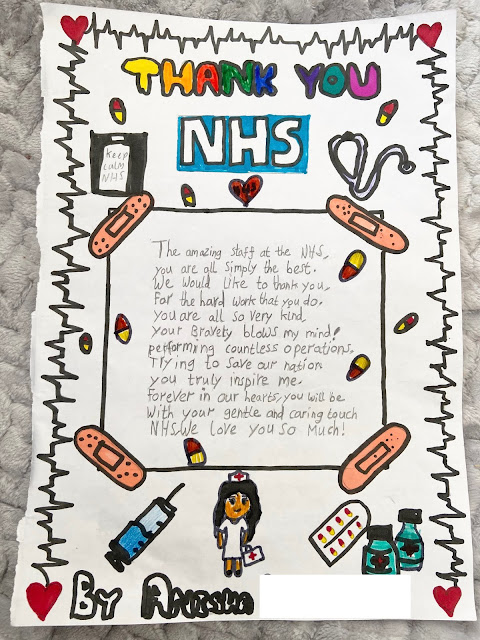 THANK YOU
NHS
KEEP
CALM
NHS
The amazing staff at the NHS,
you are all simply the best.
We would like to thank you,
For the hard work that you do.
you are all so very kind,
your Bravety blows my mind!
performing countless operations,
Trying to save our nation
you truly inspire me.
Forever in our hearts, you will be
With your gentle and caring touch
NHS, We love you so much!
By